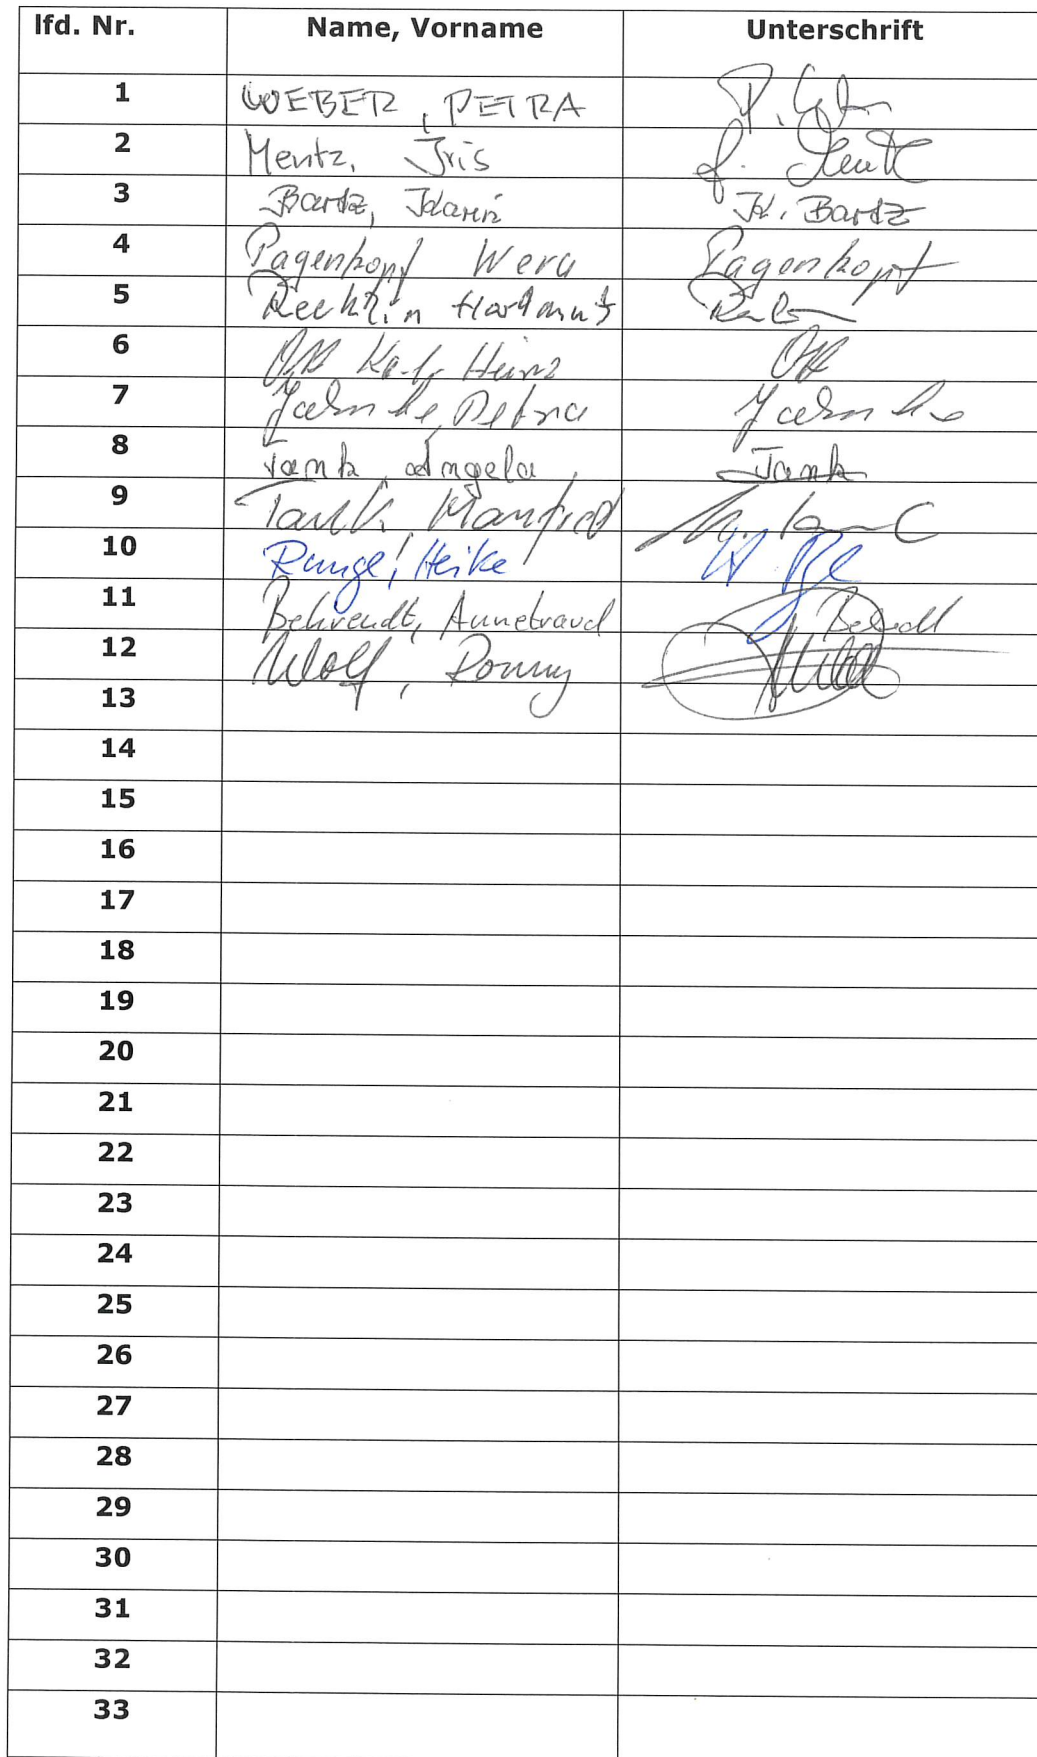 lfd. Nr. Name, Vorname Unterschrift
1 WEBER, PETRA
2 Mentz, Iris
3 Bartz, Karin K. Bartz
4 Pagenkopf Wera Pagenkopf
5 Hartmut
6 Ott Karl-Heinz Ott
7 Jahnke, Petra Jahnke
8 Tank, Angela Tank
9 Manfred
10 Runge, Heike
11 Behrendt, Annetraud
12 Wolf, Ronny
13
14
15
16
17
18
19
20
21
22
23
24
25
26
27
28
29
30
31
32
33